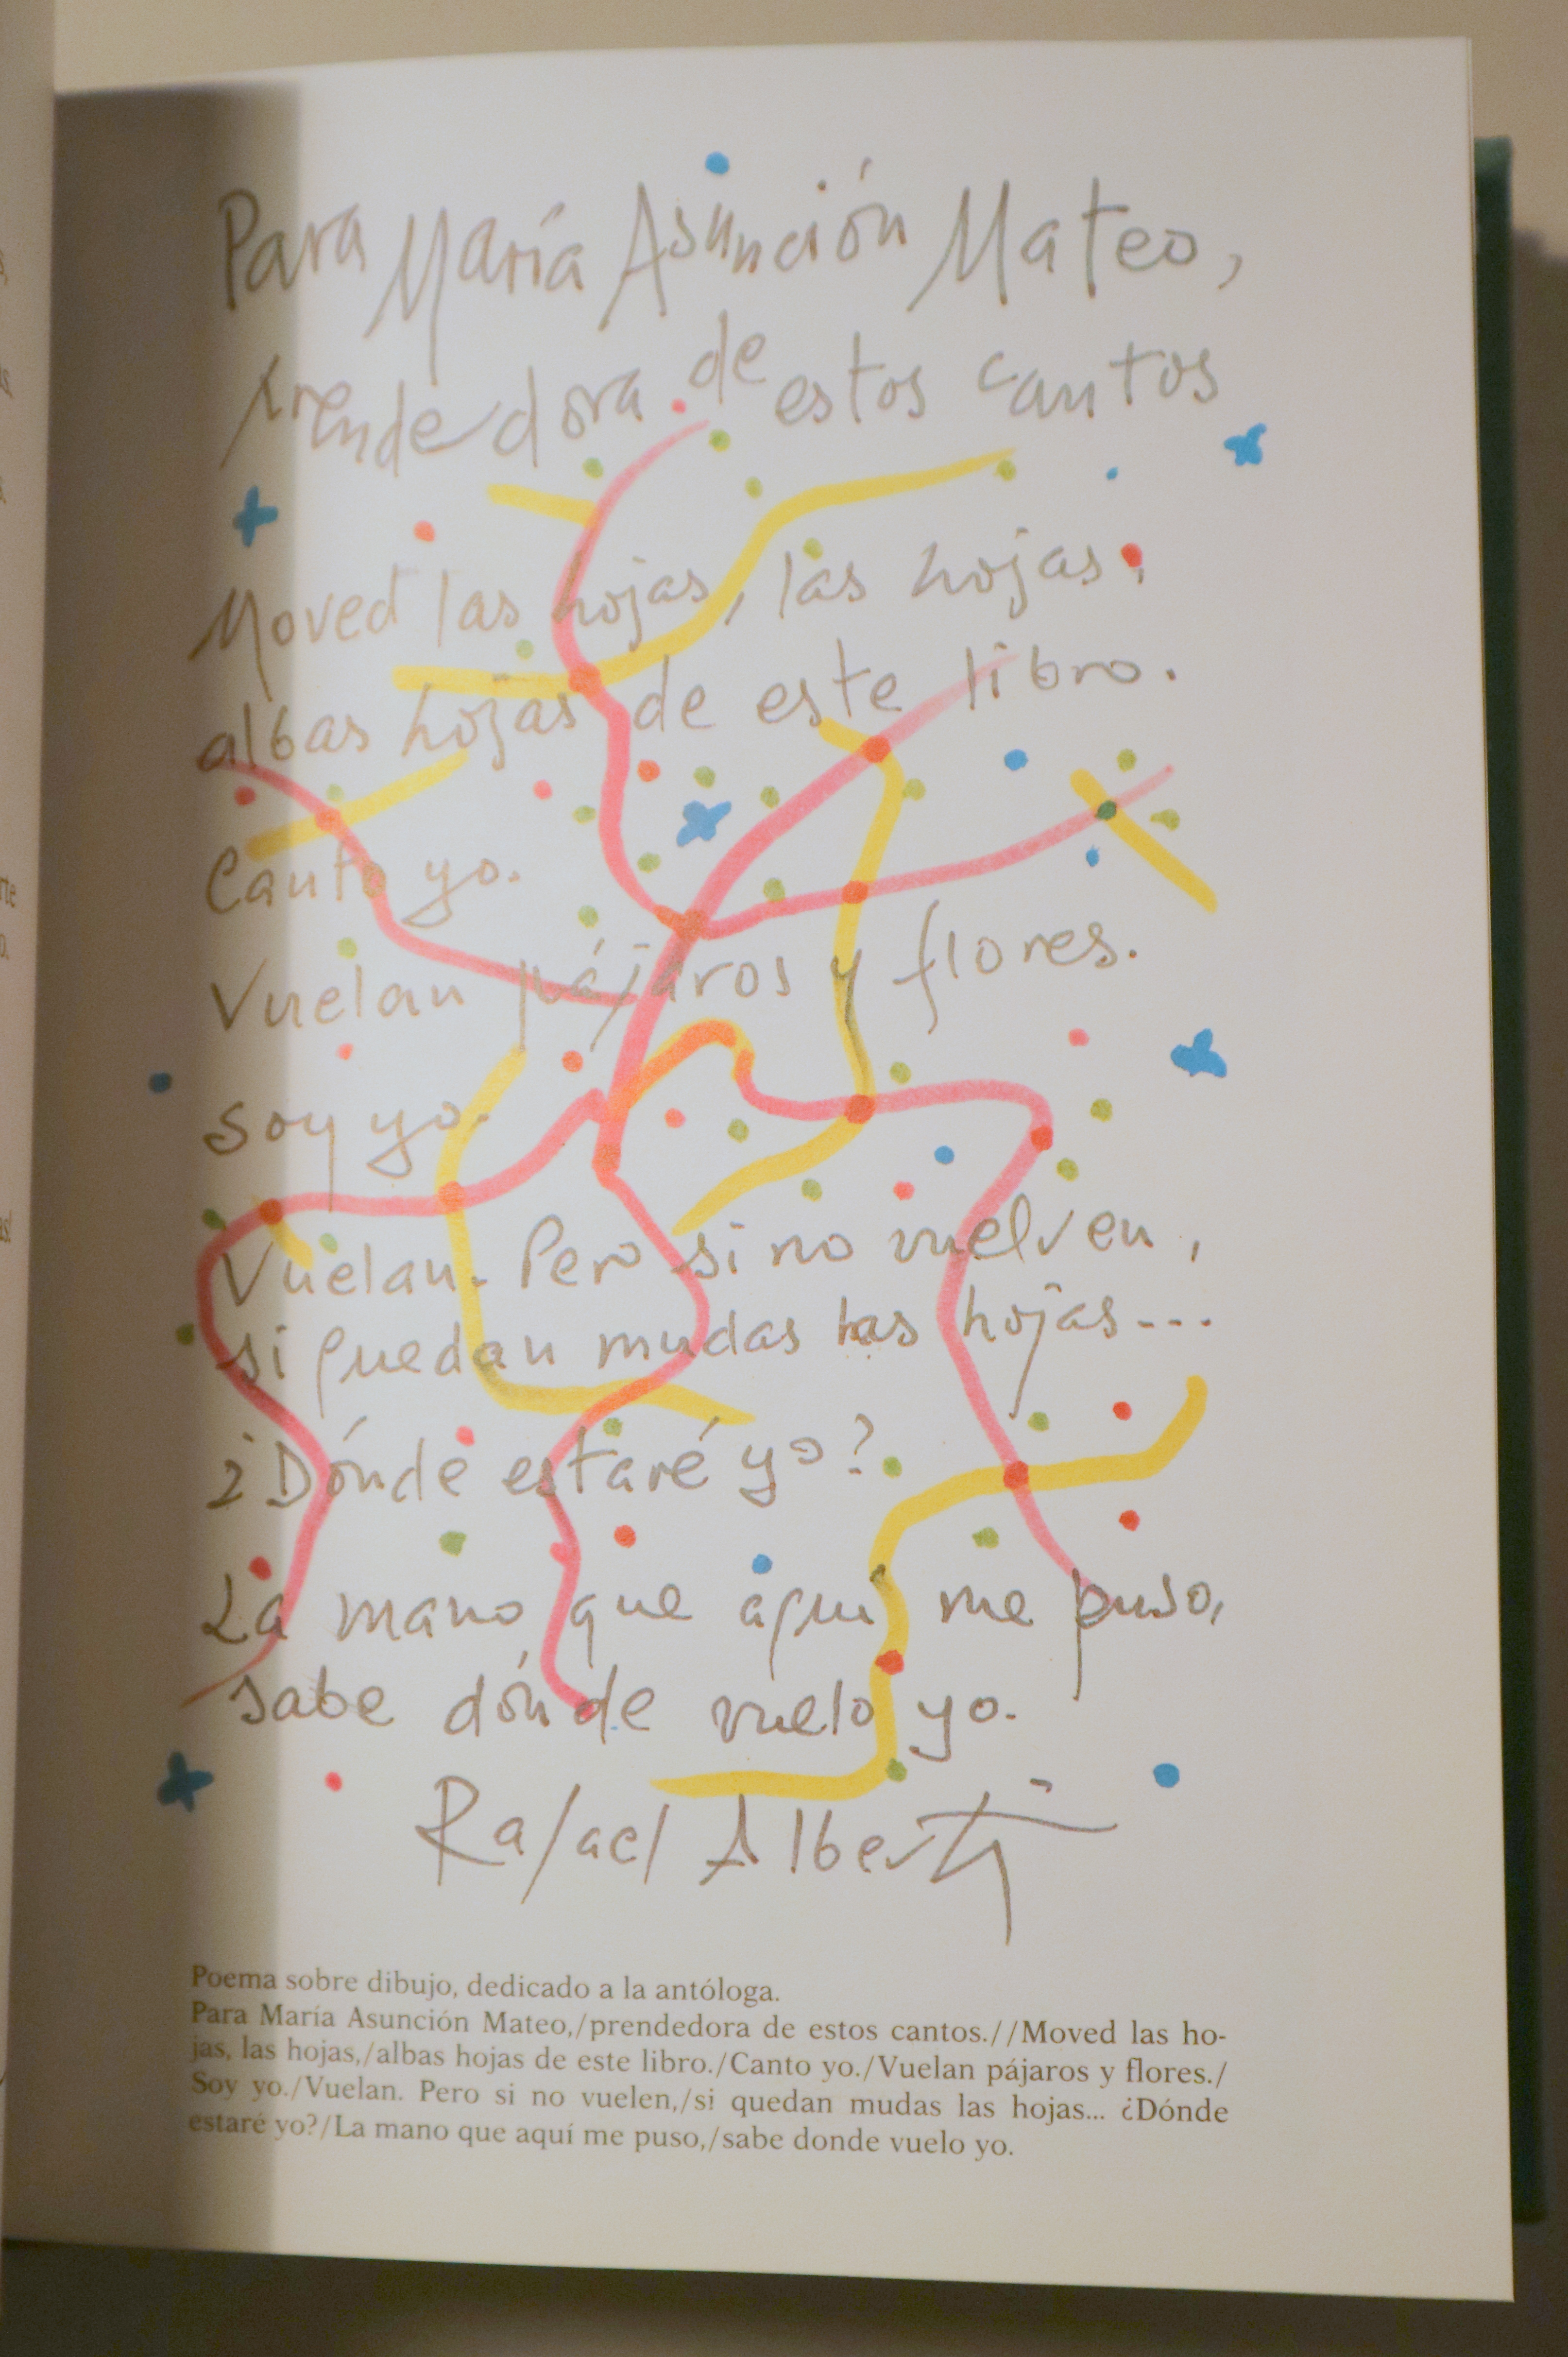 Para María Asunción Mateo,
prendedora de estos cantos
Moved las hojas, las hojas,
albas hojas de este libro.
Canto yo.
Vuelan pájaros y flores.
Soy yo.
Vuelan. Pero si no vuelven,
si quedan mudas las hojas...
¿Dónde estaré yo?
La mano que aquí me puso,
sabe dónde vuelo yo.
Rafael Alberti
Poema sobre dibujo, dedicado a la antóloga.
Para María Asunción Mateo,/prendedora de estos cantos.//Moved las ho-
jas, las hojas,/albas hojas de este libro./Canto yo./Vuelan pájaros y flores./
Soy yo./Vuelan. Pero si no vuelen,/si quedan mudas las hojas... ¿Dónde
estaré yo?/La mano que aquí me puso,/sabe donde vuelo yo.